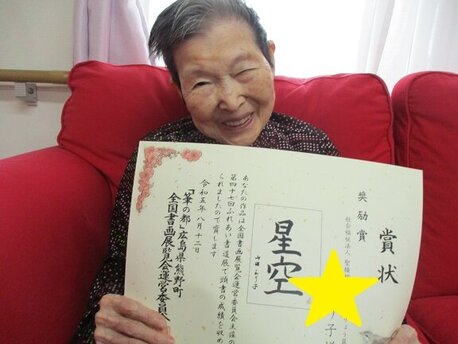 賞状
奨励賞
社会福祉法人
星空
あなたの作品は全国書画展覧会運営委員会主催の
第四十七ふれあい書道展で頭書の成績を収め
られましたので賞します
令和五年八月十二日
「筆の都」広島県熊野町
全国書画展覧会運営委員